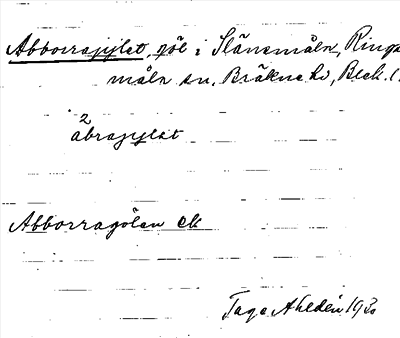 Abborragylet, göl i Slänsmåln, Ringa
måln sn, Bräkne hd, Blek. l.
2
abragylet
Abborragölen ek
Tage Ahldén 193